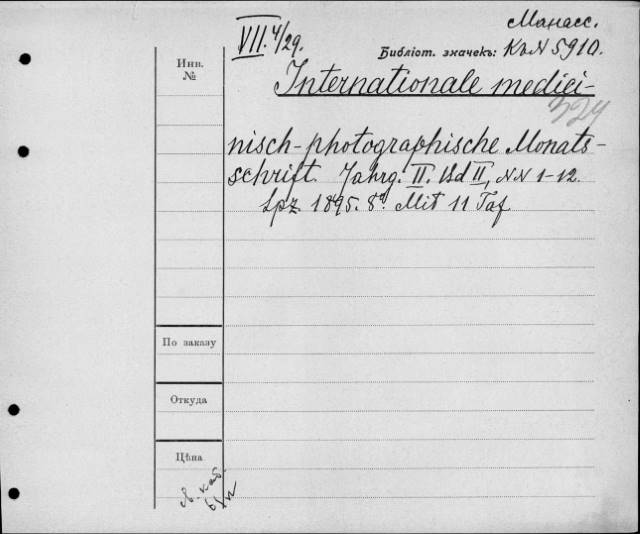 Манасс.
VII. 4/29.
Библіот. значекъ: К. №5910.
Инв.
№
Internationale medici-
324
nisch-photographische Monats-
schrift. Jahrg. II. Bd II, NN 1-12.
Lpz. 1895. 8º. Mit 11 Taf
По заказу
Откуда
Цѣна